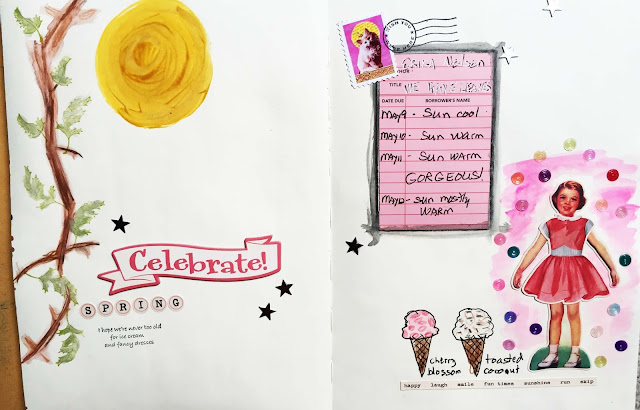 Celebrate!
SPRING
I hope we're never too old
for ice cream
and fancy dresses
WISH YOU
TITLE
DATE DUE BORROWER'S NAME
MAY 9 - Sun cool
MAY 10 - Sun warm
MAY 11 - Sun warm
GORGEOUS!
MAY 12 - Sun mostly
WARM
cherry
blossom
toasted
coconut
happy laugh smile fun times sunshine run skip